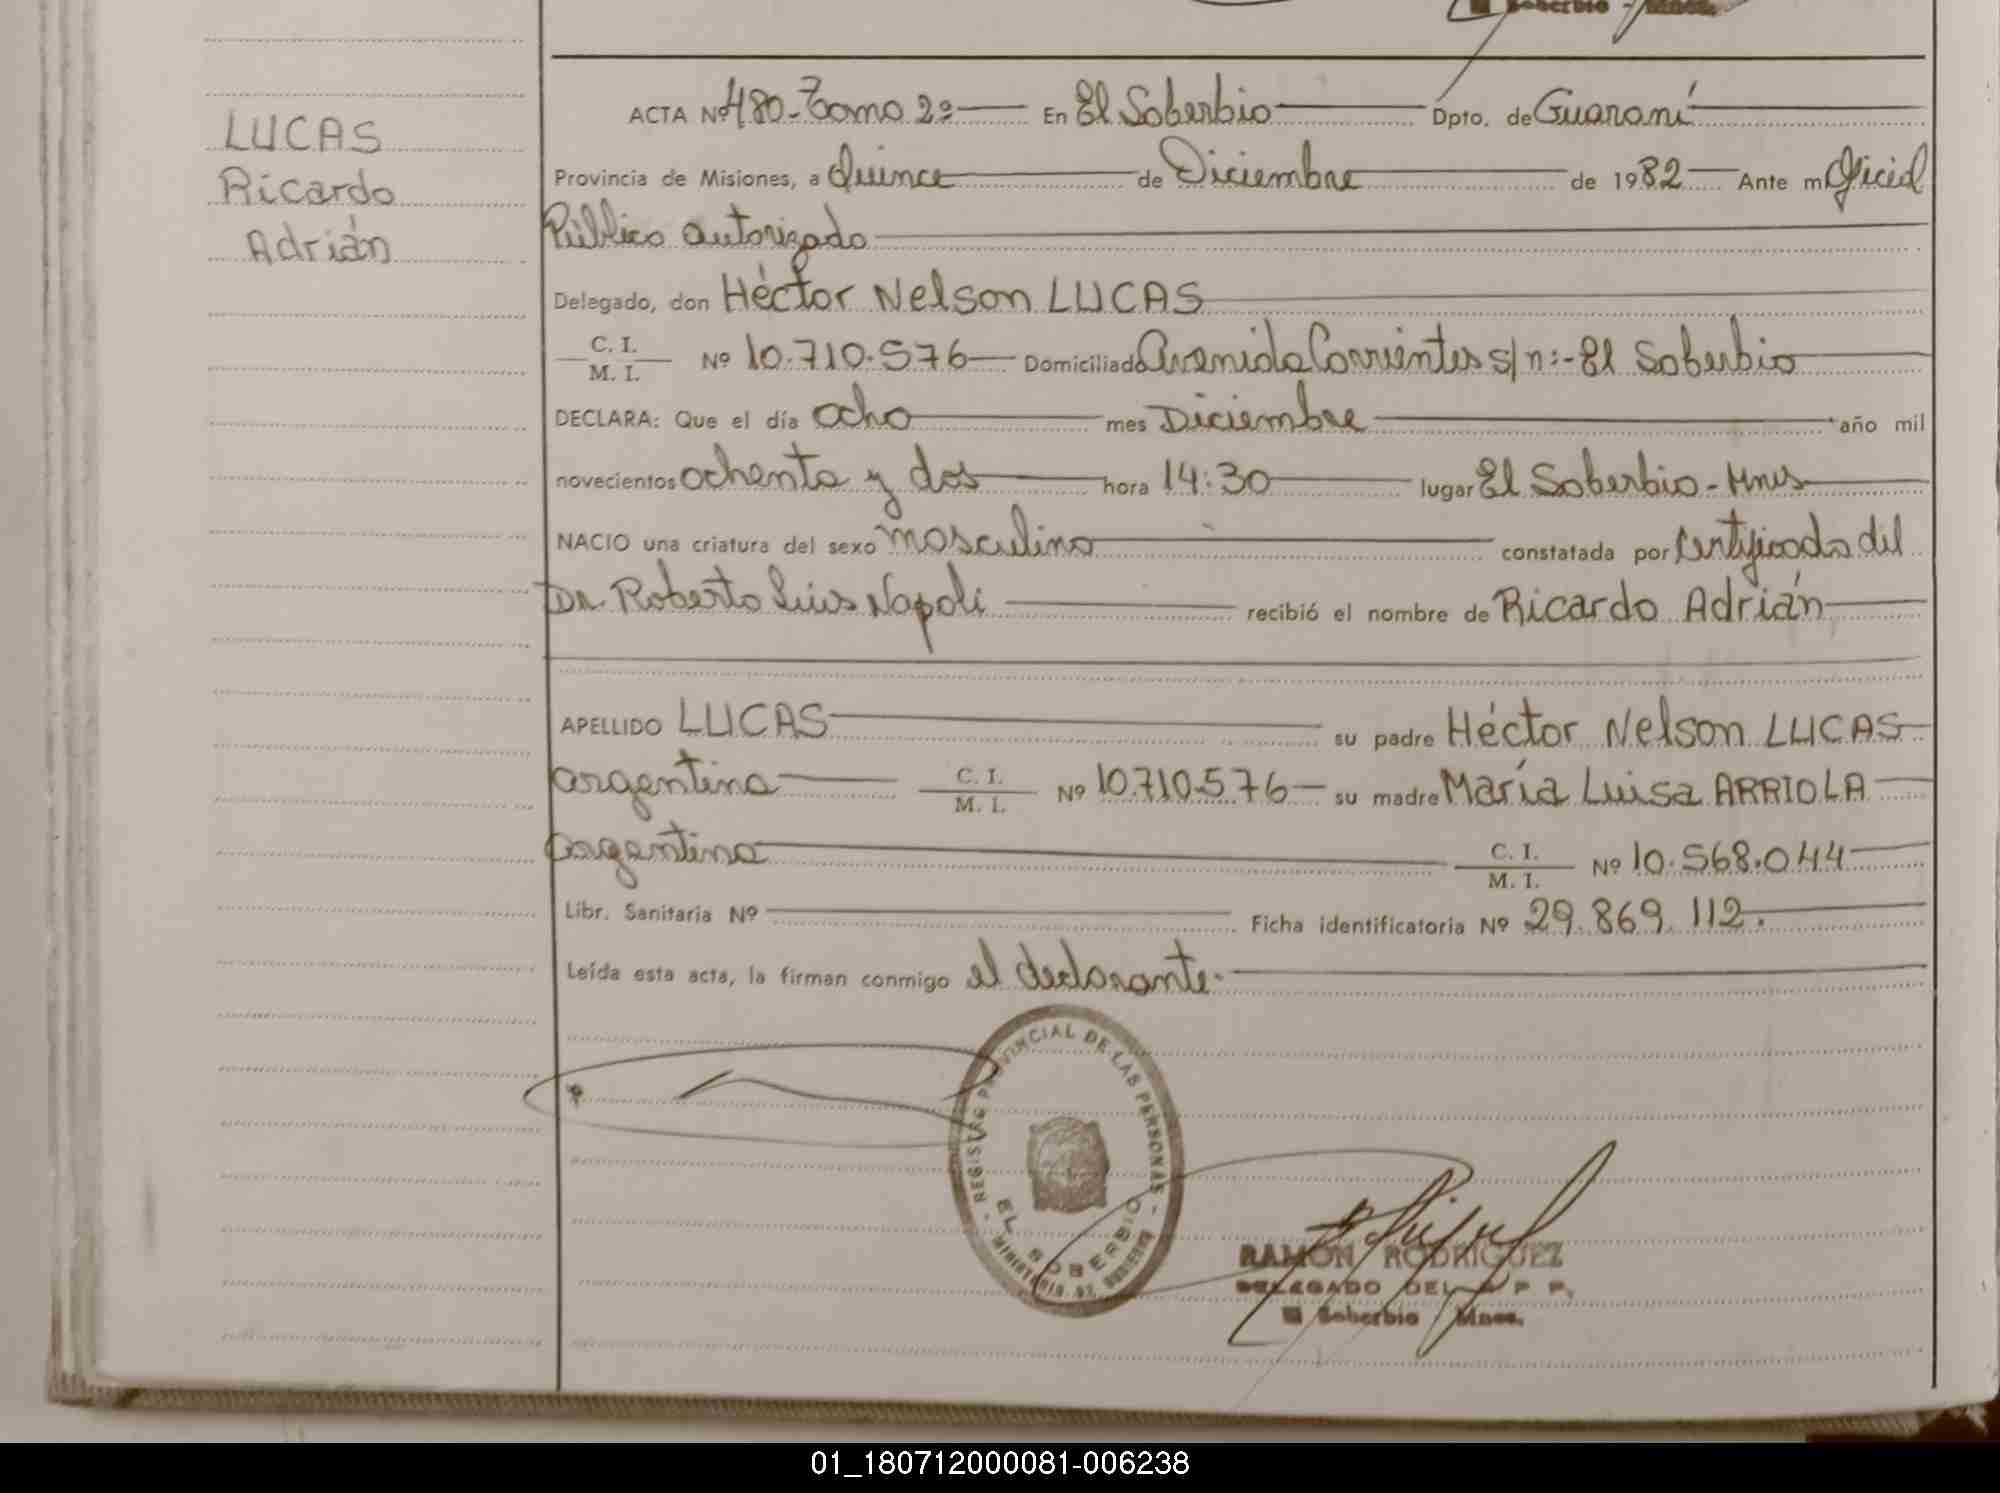 Soberbio - Mnes.
ACTA Nº 480-Tomo 2º En El Soberbio Dpto. de Guaraní
LUCAS
Ricardo
Adrián
Provincia de Misiones, a Quince de Diciembre de 1982 Ante mi Oficial
Público autorizado
Delegado, don Héctor Nelson LUCAS
C. I.
M. I. Nº 10.710.576 Domiciliado Avenida Corrientes s/n:- El Soberbio
DECLARA: Que el día ocho mes Diciembre año mil
novecientos ochenta y dos hora 14:30 lugar El Soberbio - Mnes
NACIO una criatura del sexo masculino constatada por Certificado del
Dr. Roberto Luis Napoli recibió el nombre de Ricardo Adrián
APELLIDO LUCAS su padre Héctor Nelson LUCAS
argentino C. I.
M. I. Nº 10.710.576 su madre María Luisa ARRIOLA
argentina C. I.
M. I. Nº 10.568.044
Libr. Sanitaria Nº Ficha identificatoria Nº 29.869.112.
Leída esta acta, la firman conmigo el declarante.
REGISTRO PROVINCIAL DE LAS PERSONAS
EL SOBERBIO
MINISTERIO DE GOBIERNO
RAMON RODRIGUEZ
DELEGADO DEL R P P.
El Soberbio Mnes.
01_180712000081-006238